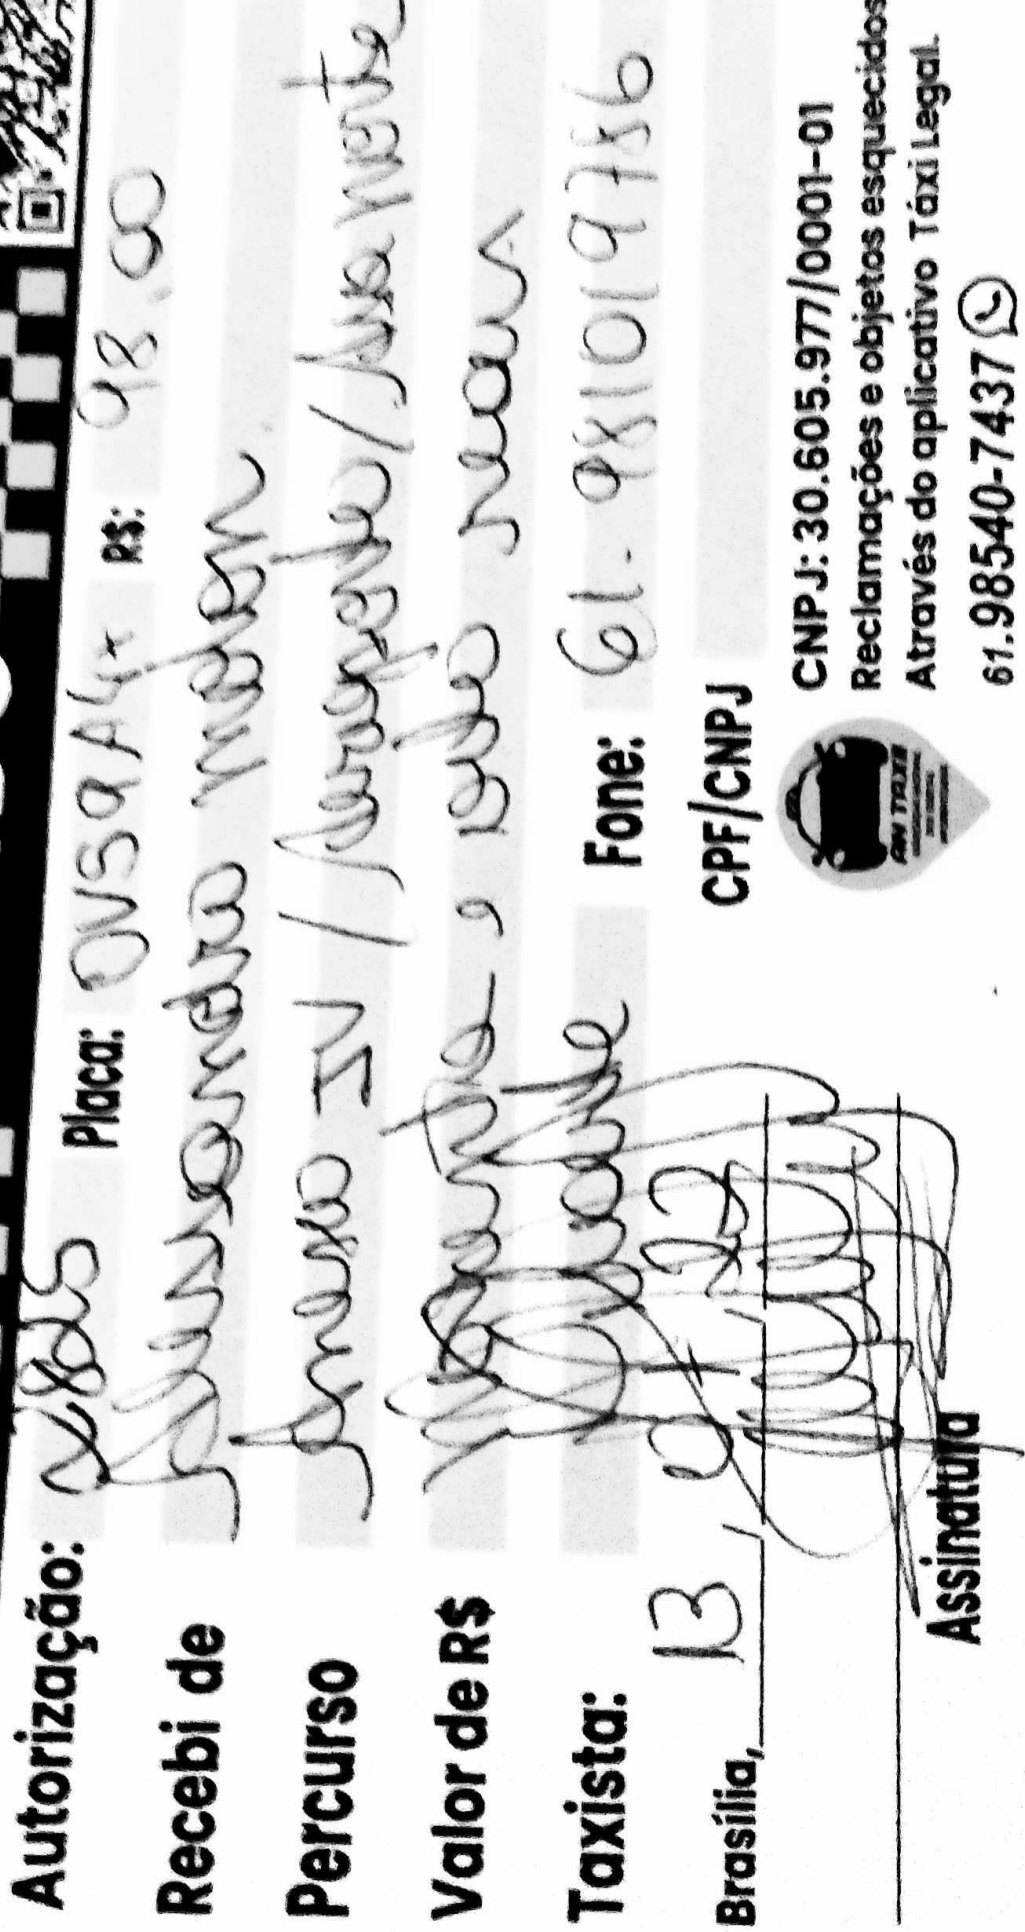 Autorização: 2825 Placa: OVS9A47 R$: 98.00
Recebi de Alessandra
Percurso Anexo IV / Aeroporto / Asa Norte
Valor de R$ Noventa e oito reais
Taxista: Fone: 61-981019786
CPF/CNPJ
Brasília, 13, 07, 23
CNPJ: 30.605.977/0001-01
Reclamações e objetos esquecidos
Através do aplicativo Táxi Legal.
61.98540-7437
AN TAXI
Assinatura